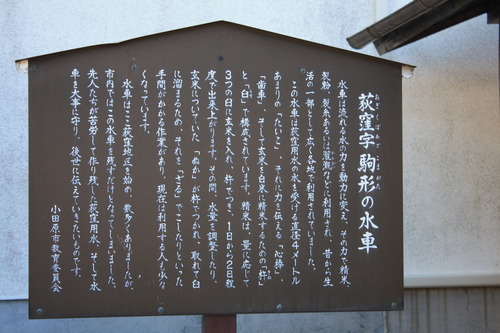 荻窪字 駒形の水車
おぎくぼあざ こまがた
水車は流れる水の力を動力に変え、その力で精米、
製粉、製糸あるいは灌漑などに利用され、昔から生
活の一部として広く各地で利用されていました。
この水車は荻窪用水の水を受ける直径4メートル
あまりの「たいこ」、それに力を伝える「心棒」、
「歯車」、そして玄米を白米に精米するための「杵」
と「臼」で構成されています。精米は、量に応じて
3つの臼に玄米を入れ、杵でつき、1日から2日程
度で出来上がります。その間、水量を調整したり、
玄米についていた「ぬか」が杵でつかれ、取れて臼
に溜まるため、それを「ざる」でこしたりといった
手間のかかる作業があり、現在は利用する人も少な
くなっています。
水車はここ荻窪地区を始め、数多くありましたが、
市内ではこの水車を残すだけとなってしまいました。
先人たちが苦労して作り残した荻窪用水、そして水
車を大事に守り、後世に伝えていきたいものです。
小田原市教育委員会